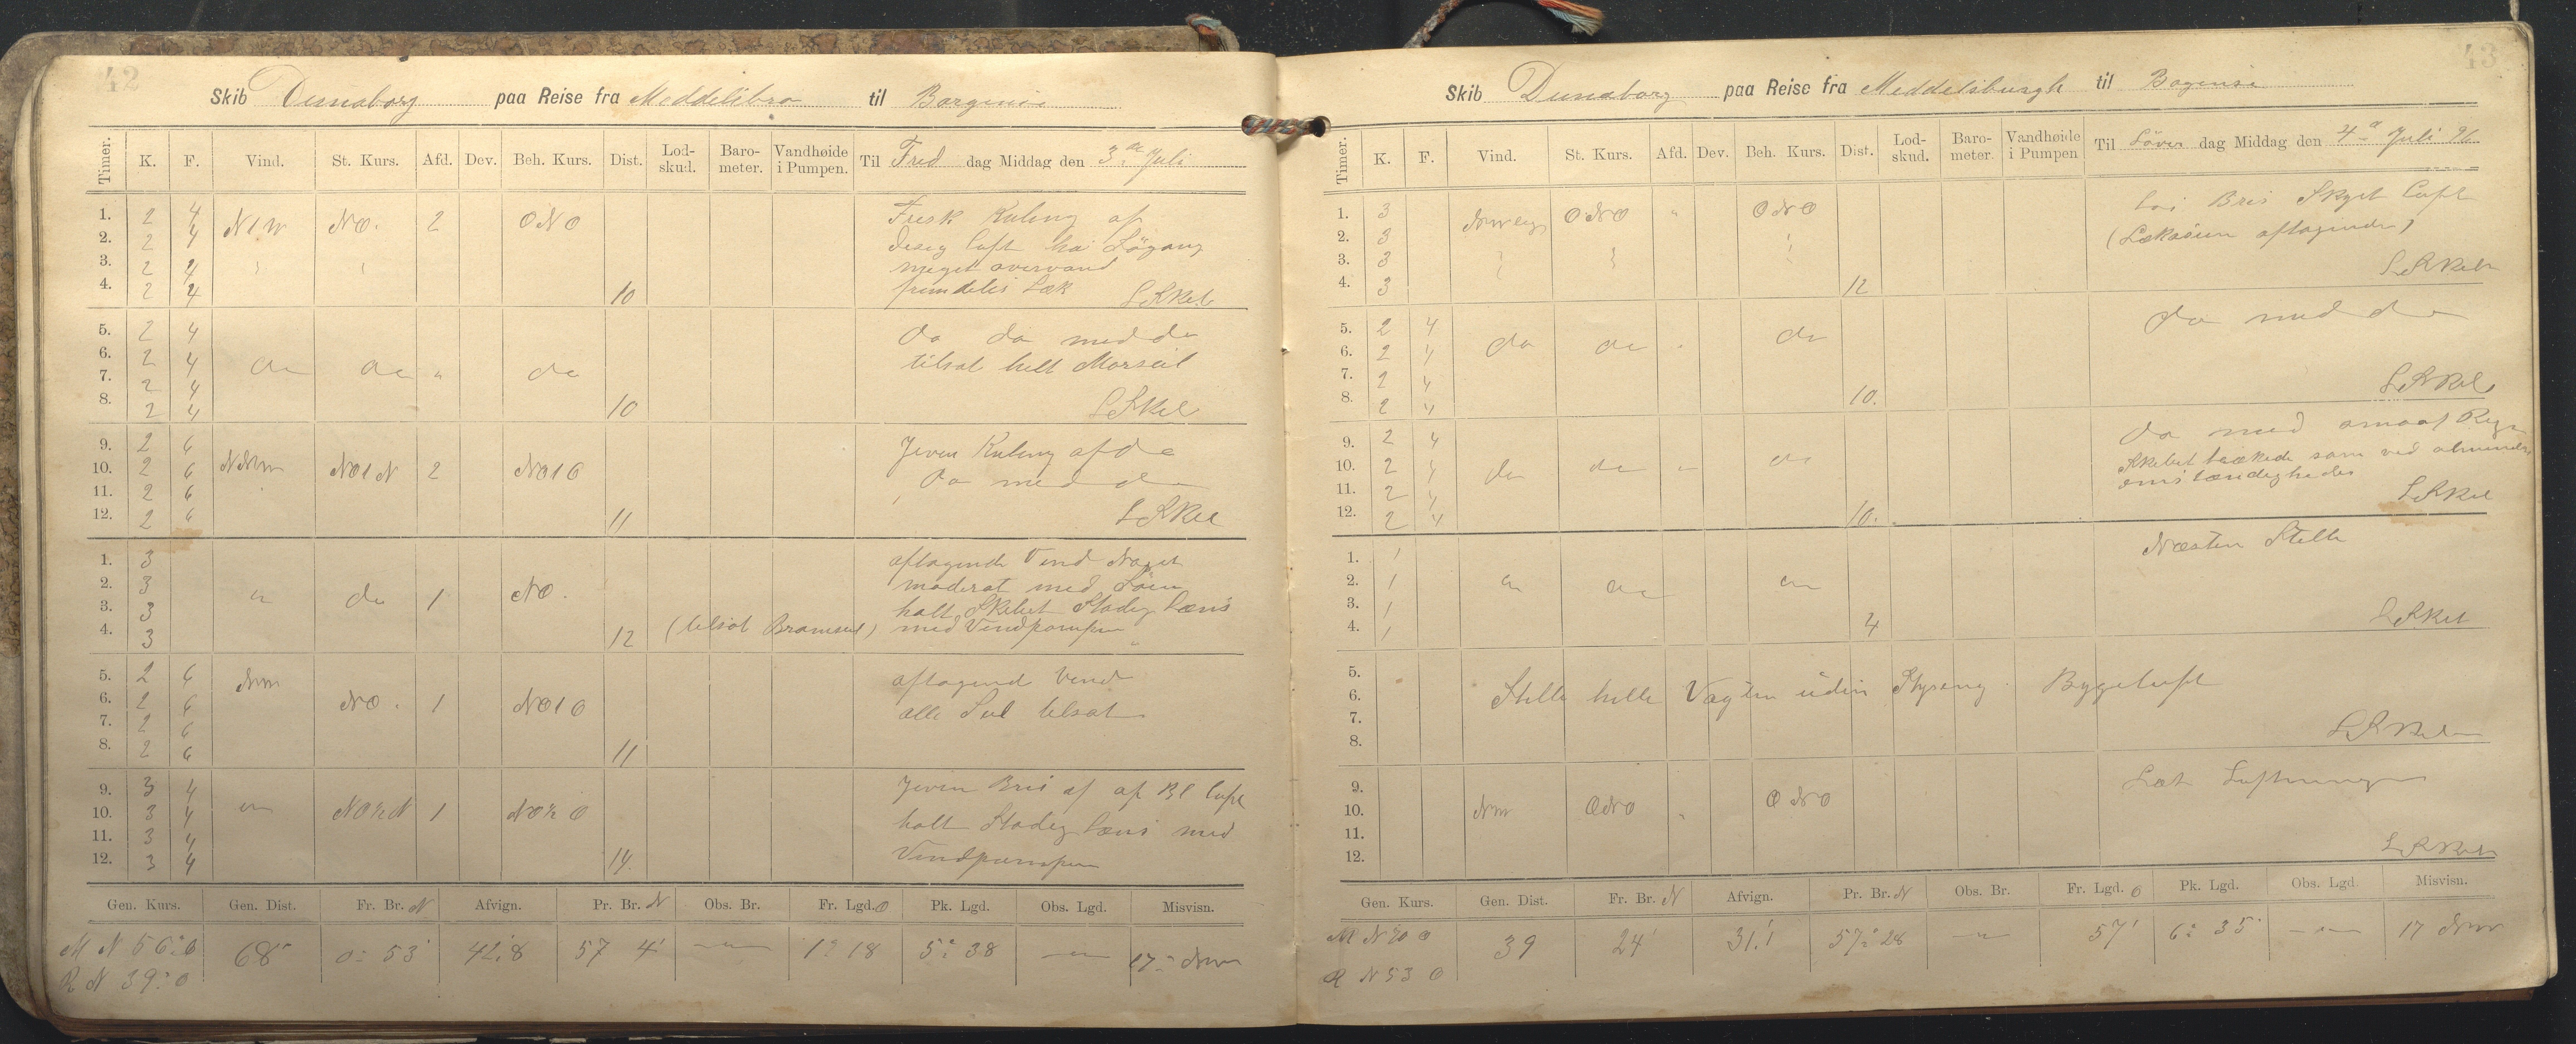 42
Skib Dunaborg paa Reise fra Meddelibro til Borgense
Timer. K. F. Vind. St. Kurs. Afd. Dev. Beh. Kurs. Dist. Lod-skud. Baro-meter. Vandhøide i Pumpen. Til Fred dag Middag den 3die Juli
1. 2 4 N1W NO. 2 ONO Frisk Kuling af
2. 2 4 disig luft hai Sögang
3. 2 4 meget overvand
4. 2 4 10 fremdelis Læk
5. 2 4 do do med do
6. 2 4 do do " do tilsat helt Morseil
7. 2 4
8. 2 4 10
9. 2 6 Jevn Kuling af do
10. 2 6 NNW NO1N 2 NO1O do med do
11. 2 6
12. 2 6 11
1. 3 aftagende Vind Noget
2. 3 do 1 NO. moderat med Söen
3. 3 holt Skibet Stadig læns
4. 3 12 (tilsat Bramseil) med Vindpompen
5. 2 6 NW aftagend Vind
6. 2 6 NO. 1 NO1O alle Seil tilsat
7. 2 6
8. 2 6 11
9. 3 4 Jevn Bris af af Bl luft
10. 3 4 1 holt Stadig læns med
11. 3 4 Vindpumpen
12. 3 4 14.
Gen. Kurs. Gen. Dist. Fr. Br. N Afvign. Pr. Br. N Obs. Br. Fr. Lgd. O Pk. Lgd. Obs. Lgd. Misvisn.
M N 56° O 68 0° 53' 42.8 57 4' 1° 18 5° 38 17° NW
R N 39° O
43
Skib Dunaborg paa Reise fra Meddelsburgh til Bogense
Timer. K. F. Vind. St. Kurs. Afd. Dev. Beh. Kurs. Dist. Lod-skud. Baro-meter. Vandhøide i Pumpen Til Löver dag Middag den 4de Juli 96
1. 3 ONO " ONO Bris Skyet Luft
2. 3 (Lækasien aftagende)
3. 3
4. 3 12
5. 2 4 do med do
6. 2 4 do do do
7. 2 4
8. 2 4 10.
9. 2 4 do med Regn
10. 2 4 do do do Skibet lækede som ved almindelig
11. 2 4 omstændigheder
12. 2 4 10.
1. 1 Næsten Stille
2. 1
3. 1
4. 1 4
5.
6. Stille hele Vagten uden Styring. Bygeluft
7.
8.
9. Læt Luftninger
10. NW ONO ONO
11.
12.
Gen. Kurs. Gen. Dist. Fr. Br. N Afvign. Pr. Br. N Obs. Br. Fr. Lgd. O Pk. Lgd. Obs. Lgd. Misvisn.
M N 70 O 39 24' 31.1 57° 28 57' 6° 35 17 NW
R N 53 O